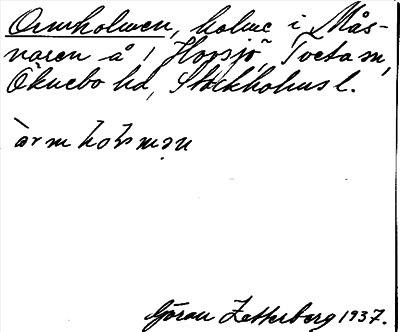 Ormholmen, holme i Mås-
naren å 1 Hovsjö, Tveta sn,
Öknebo hd, Stockholms l.
Göran Zetterberg 1937.